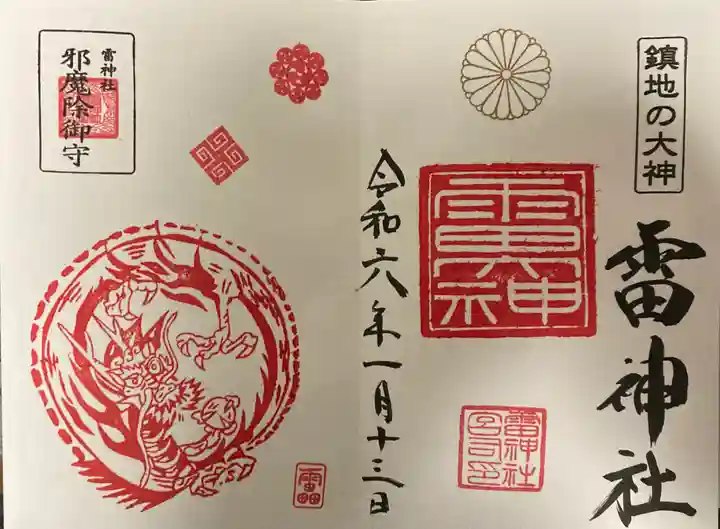 鎮地の大神
雷神社
雷神社
雷神社
宮司之印
令和六年一月十三日
雷神社
邪魔除御守